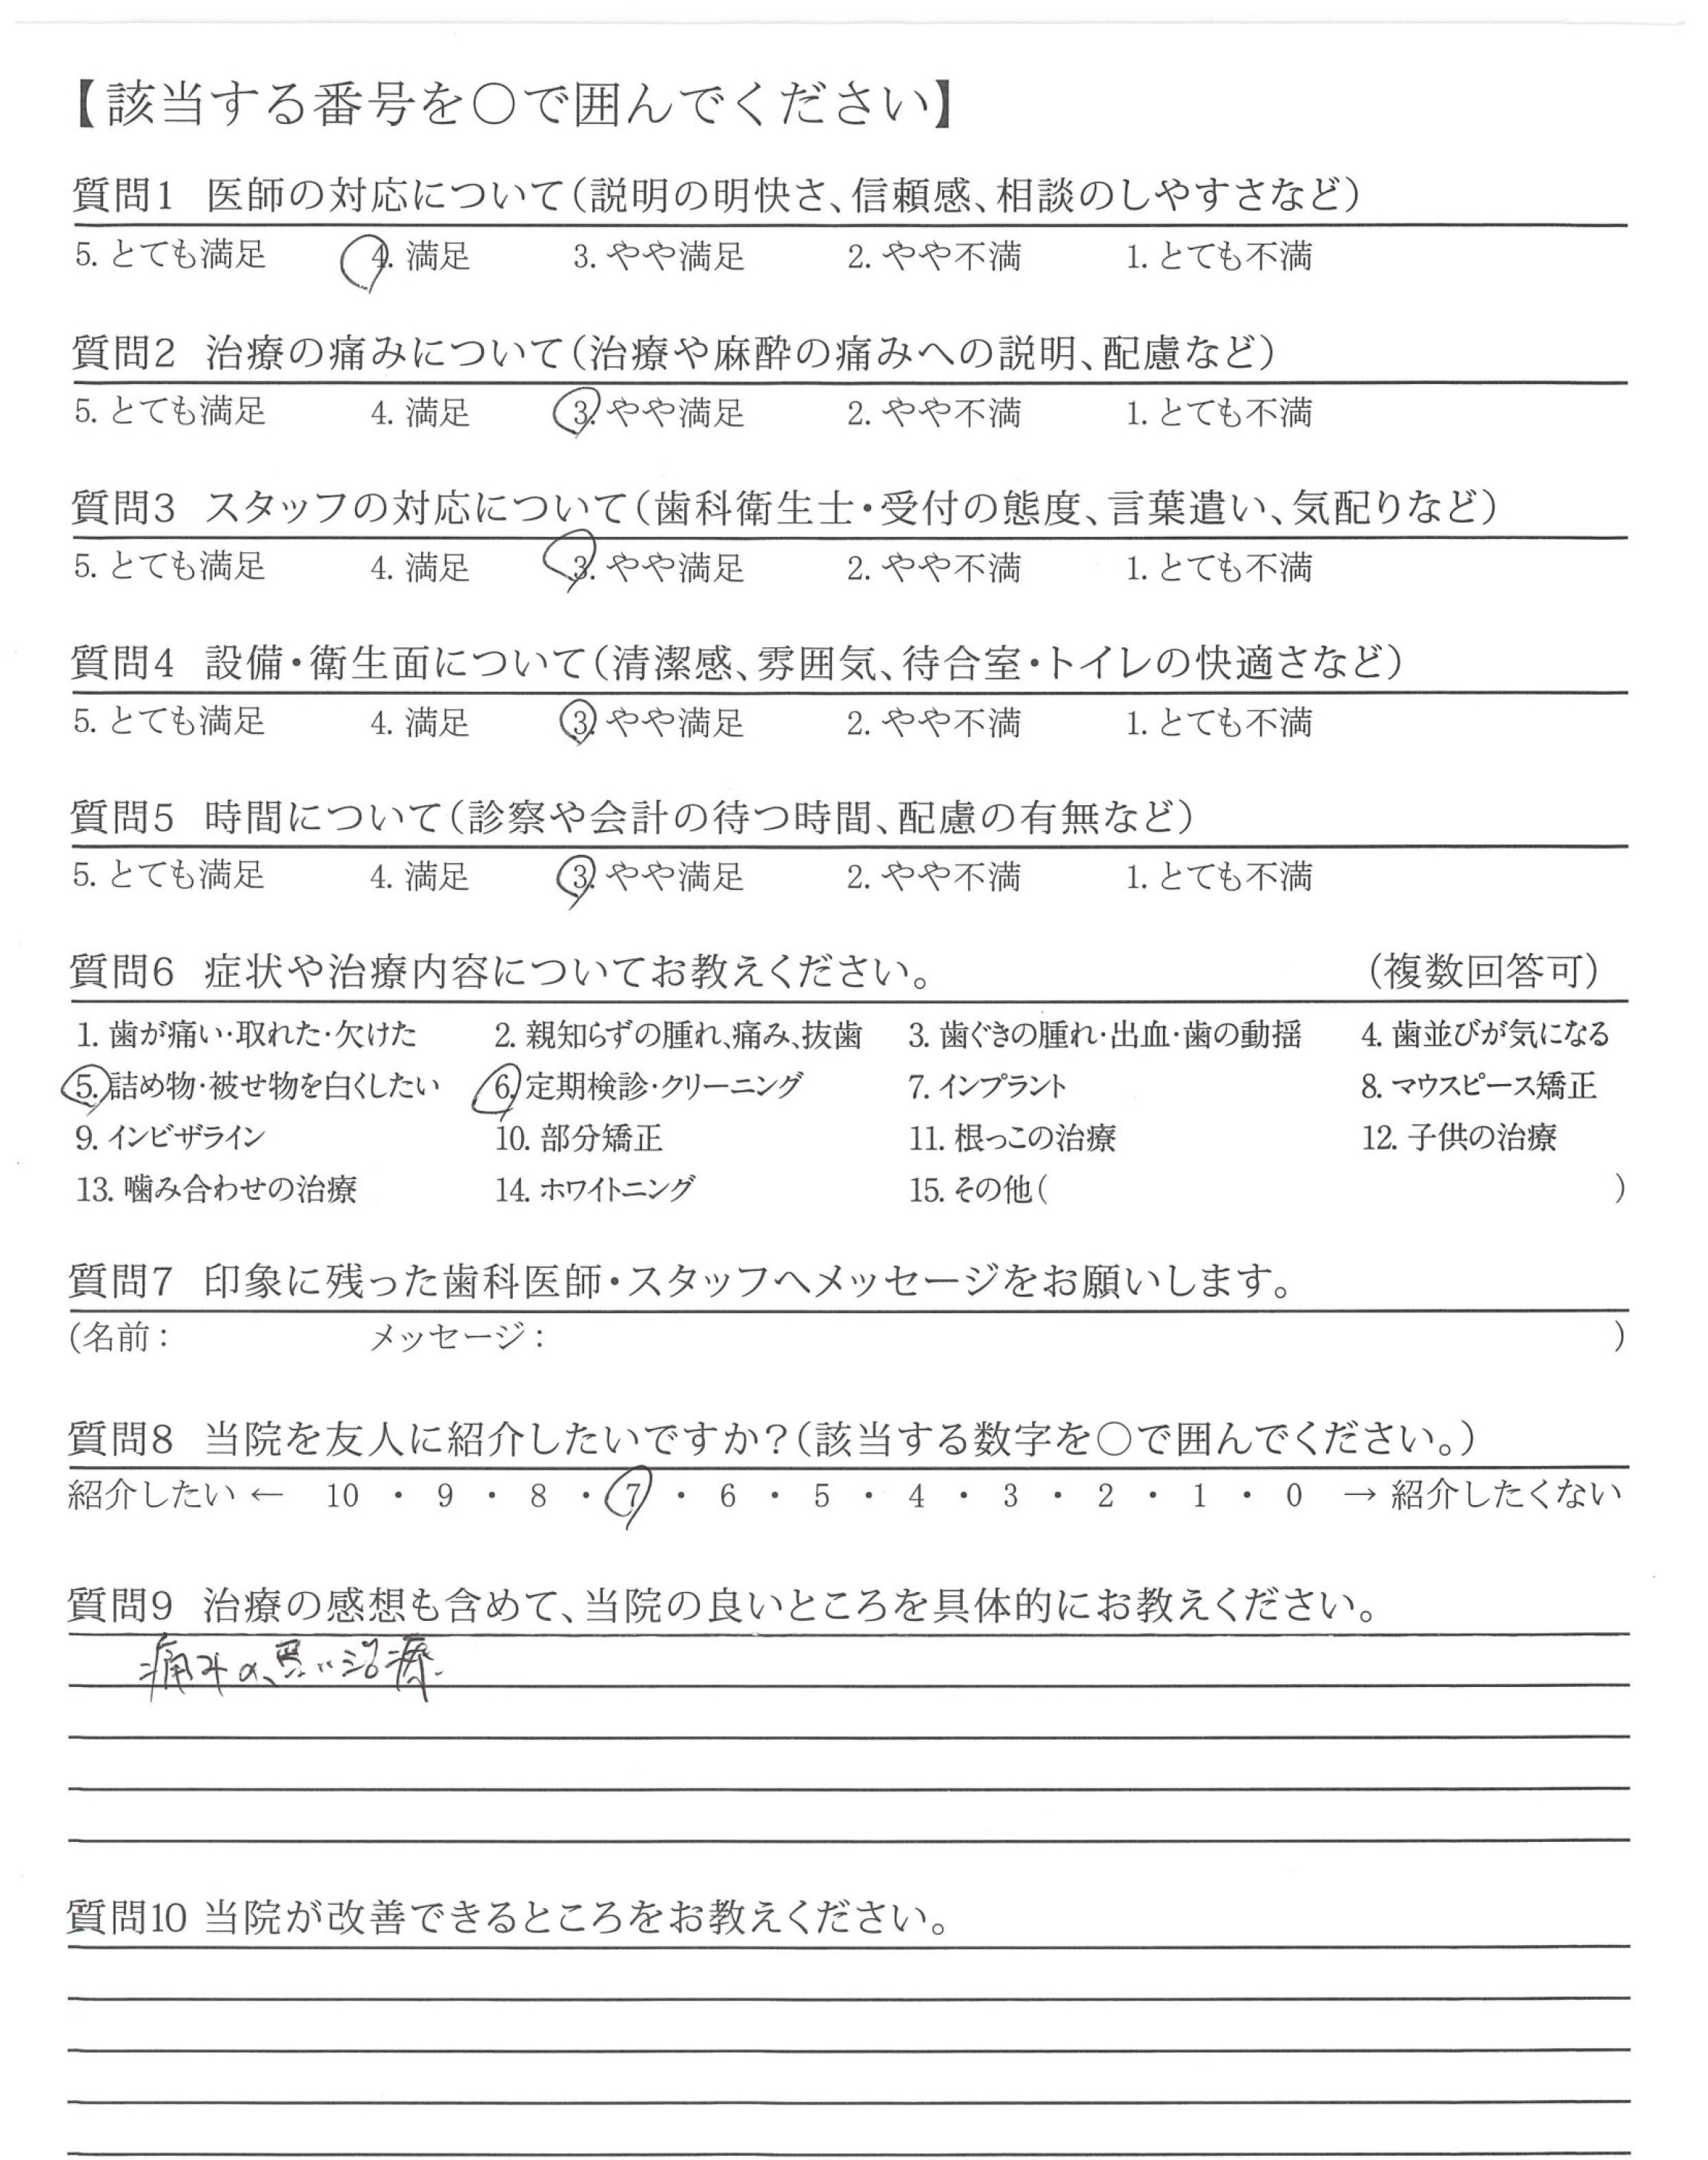 【該当する番号を○で囲んでください】
質問1 医師の対応について(説明の明快さ、信頼感、相談のしやすさなど)
5. とても満足 4. 満足 3. やや満足 2. やや不満 1. とても不満
質問2 治療の痛みについて(治療や麻酔の痛みへの説明、配慮など)
5. とても満足 4. 満足 3. やや満足 2. やや不満 1. とても不満
質問3 スタッフの対応について(歯科衛生士・受付の態度、言葉遣い、気配りなど)
5. とても満足 4. 満足 3. やや満足 2. やや不満 1. とても不満
質問4 設備・衛生面について(清潔感、雰囲気、待合室・トイレの快適さなど)
5. とても満足 4. 満足 3. やや満足 2. やや不満 1. とても不満
質問5 時間について(診察や会計の待つ時間、配慮の有無など)
5. とても満足 4. 満足 3. やや満足 2. やや不満 1. とても不満
質問6 症状や治療内容についてお教えください。 (複数回答可)
1. 歯が痛い・取れた・欠けた 2. 親知らずの腫れ、痛み、抜歯 3. 歯ぐきの腫れ・出血・歯の動揺 4. 歯並びが気になる
5. 詰め物・被せ物を白くしたい 6. 定期検診・クリーニング 7. インプラント 8. マウスピース矯正
9. インビザライン 10. 部分矯正 11. 根っこの治療 12. 子供の治療
13. 噛み合わせの治療 14. ホワイトニング 15. その他( )
質問7 印象に残った歯科医師・スタッフへメッセージをお願いします。
(名前: メッセージ: )
質問8 当院を友人に紹介したいですか?(該当する数字を○で囲んでください。)
紹介したい ← 10 ・ 9 ・ 8 ・ 7 ・ 6 ・ 5 ・ 4 ・ 3 ・ 2 ・ 1 ・ 0 → 紹介したくない
質問9 治療の感想も含めて、当院の良いところを具体的にお教えください。
痛みの 治療
質問10 当院が改善できるところをお教えください。